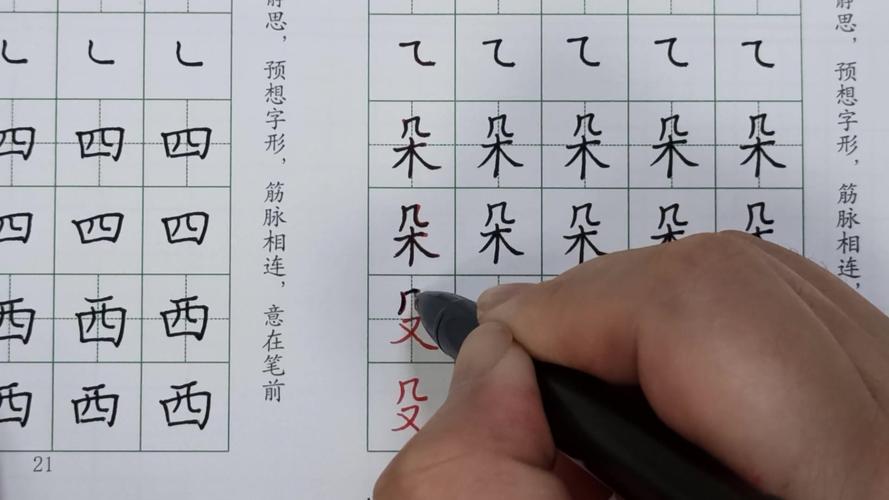 ㇄ ㇄ ㇄
四 四 四
四 四 四
西 西 西
西 西 西
21
静思，预想字形，筋脉相连，意在笔前
㇍ ㇍ ㇍ ㇍ ㇍
朵 朵 朵 朵 朵
朵 朵 朵 朵 朵
殳
殳
静思，预想字形，筋脉相连，